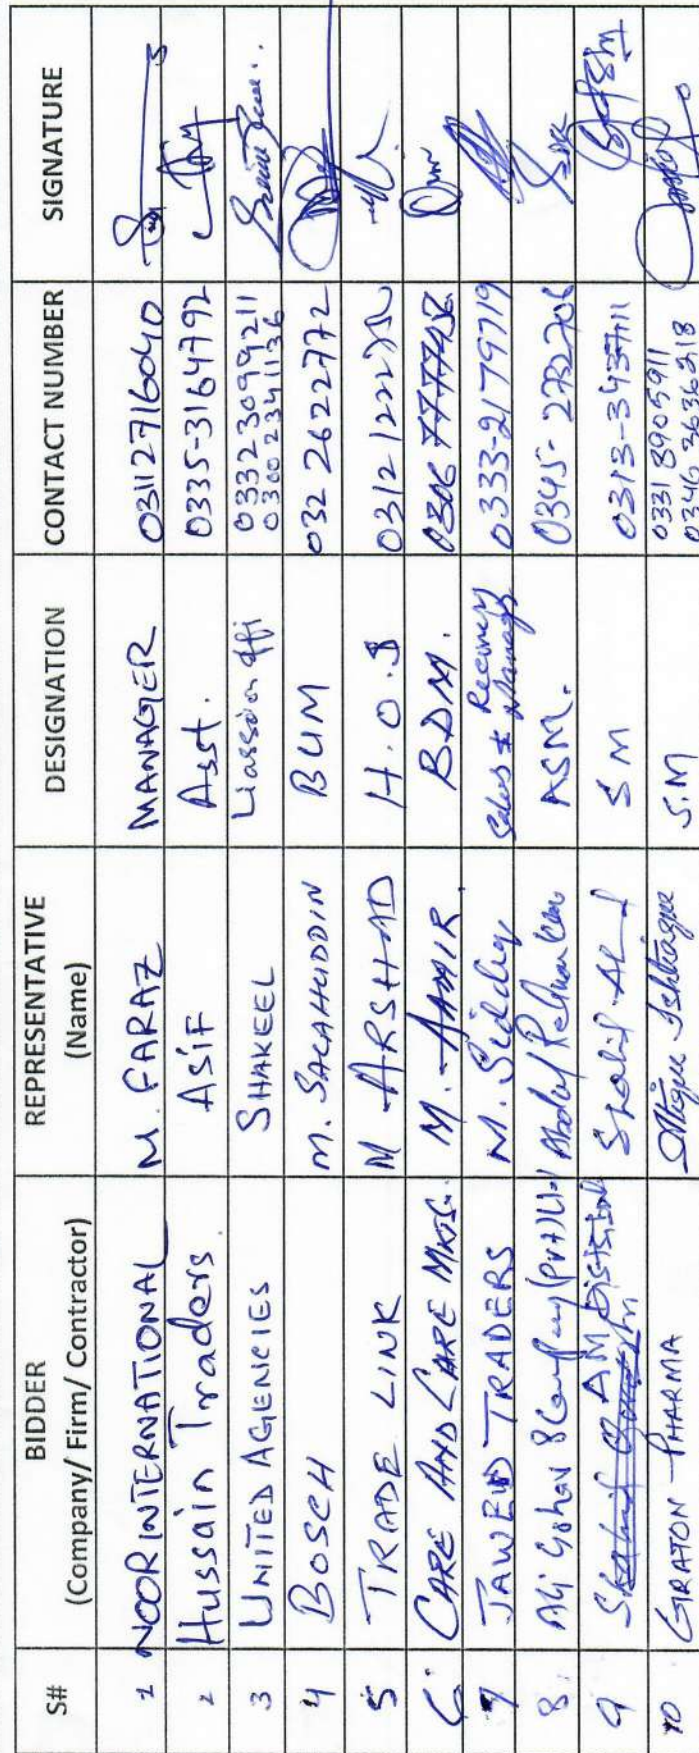 S# BIDDER (Company/ Firm/ Contractor) REPRESENTATIVE (Name) DESIGNATION CONTACT NUMBER SIGNATURE
1 NOOR INTERNATIONAL M. FARAZ MANAGER 03112716040
2 Hussain Traders ASIF Asst. 0335-3164792
3 UNITED AGENCIES SHAKEEL Liassion offi 03323099211
03002341136
4 BOSCH M. SALAHUDDIN BUM 0322622772
5 TRADE LINK M ARSHAD H.O.S
6. CARE AND CARE MKTG. M. AAMIR. BDM.
7 JAWED TRADERS M. Siddiq Sales & Recovery Manager 0333-2179719
8. Ali Gohar & Company (Pvt) Ltd Abdul Rehman ASM. 0345-2732706
9 AM Shahid Ali SM
10 GRATON PHARMA Attique Ishtiaque S.M 0331 8905911
0346 3636218